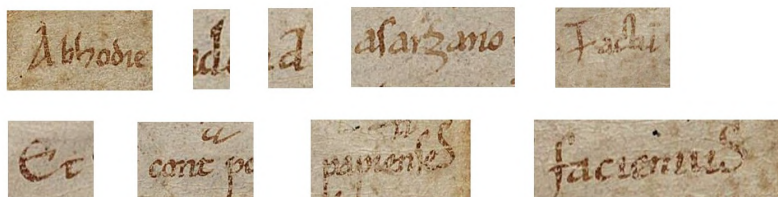 Abhodie d d asarzano Factũ
Et cont pe papienses faciemus